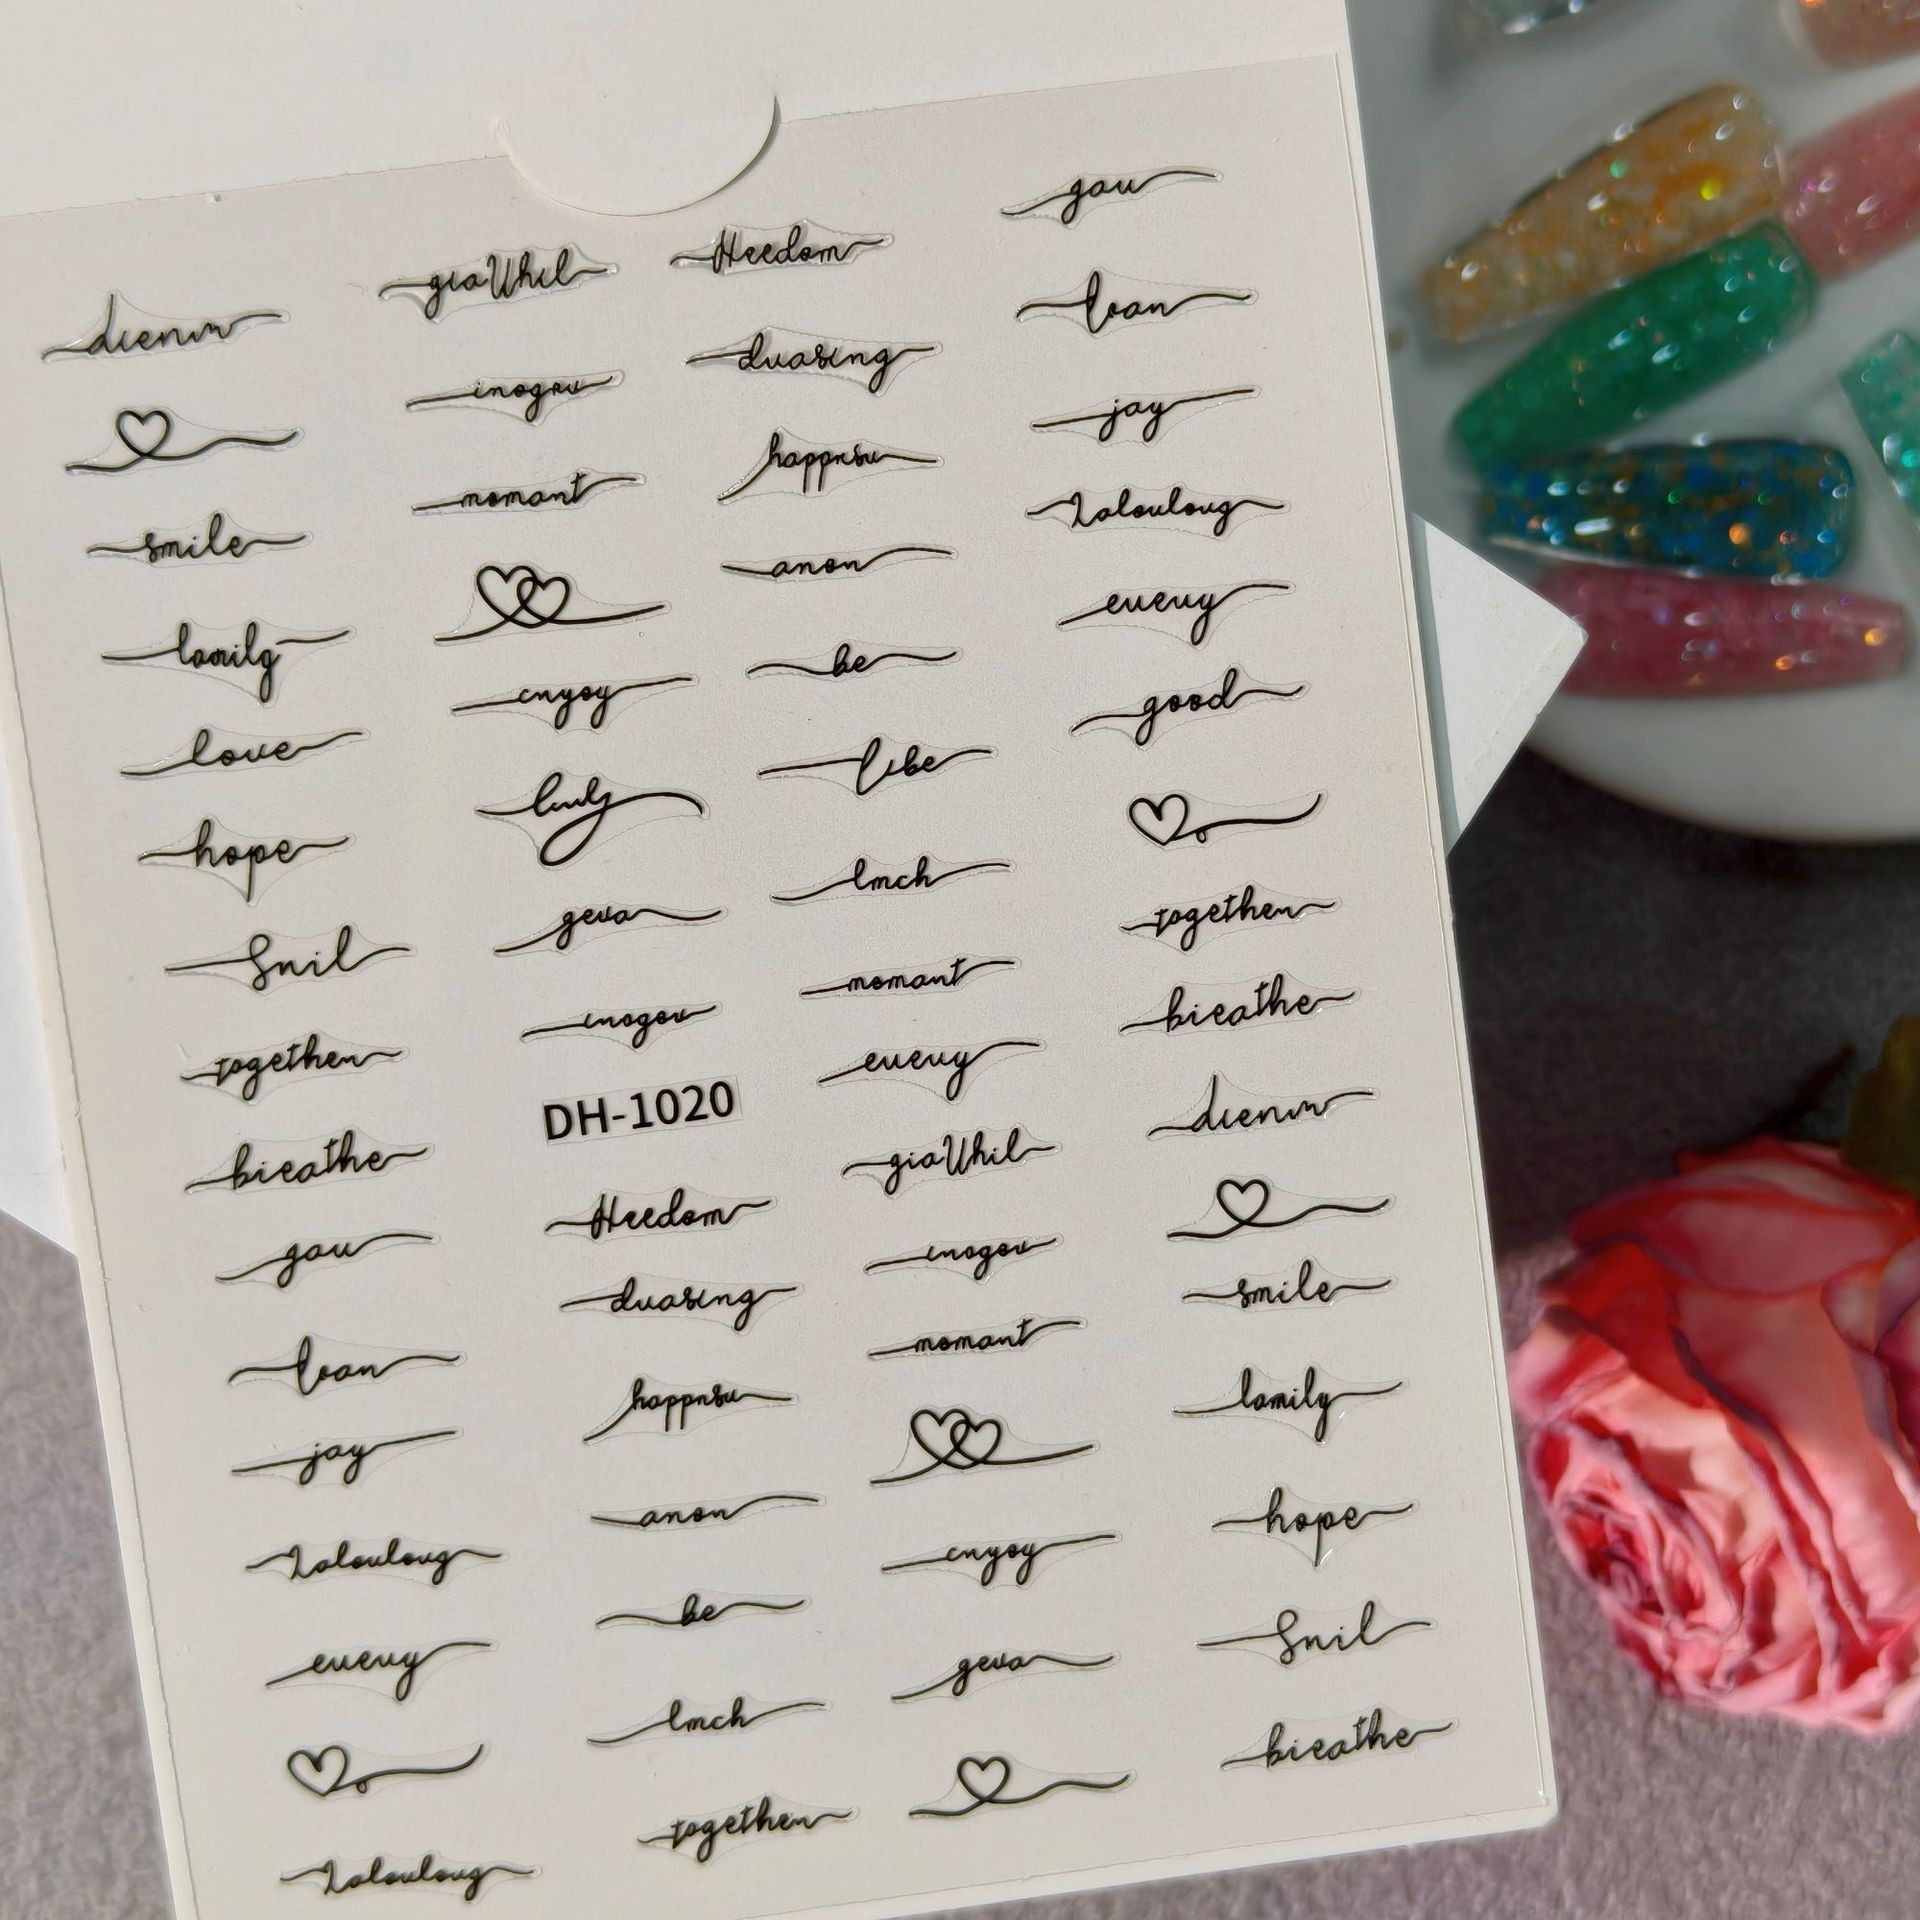 dienm
smile
lamily
love
hope
Snil
together
bieathe
gou
loan
jay
Lalouloug
eveny
Lalouloug
giaWhil
inogou
momant
enyoy
luuly
geva
inogou
DH-1020
Heedom
duasing
happnsu
anon
be
lmch
together
Heedom
duasing
happnsu
anon
be
libe
lmch
momant
eveny
giaWhil
inogou
momant
enyoy
geva
gou
loan
jay
Lalouloug
eveny
good
together
bieathe
dienm
smile
lamily
hope
Snil
bieathe